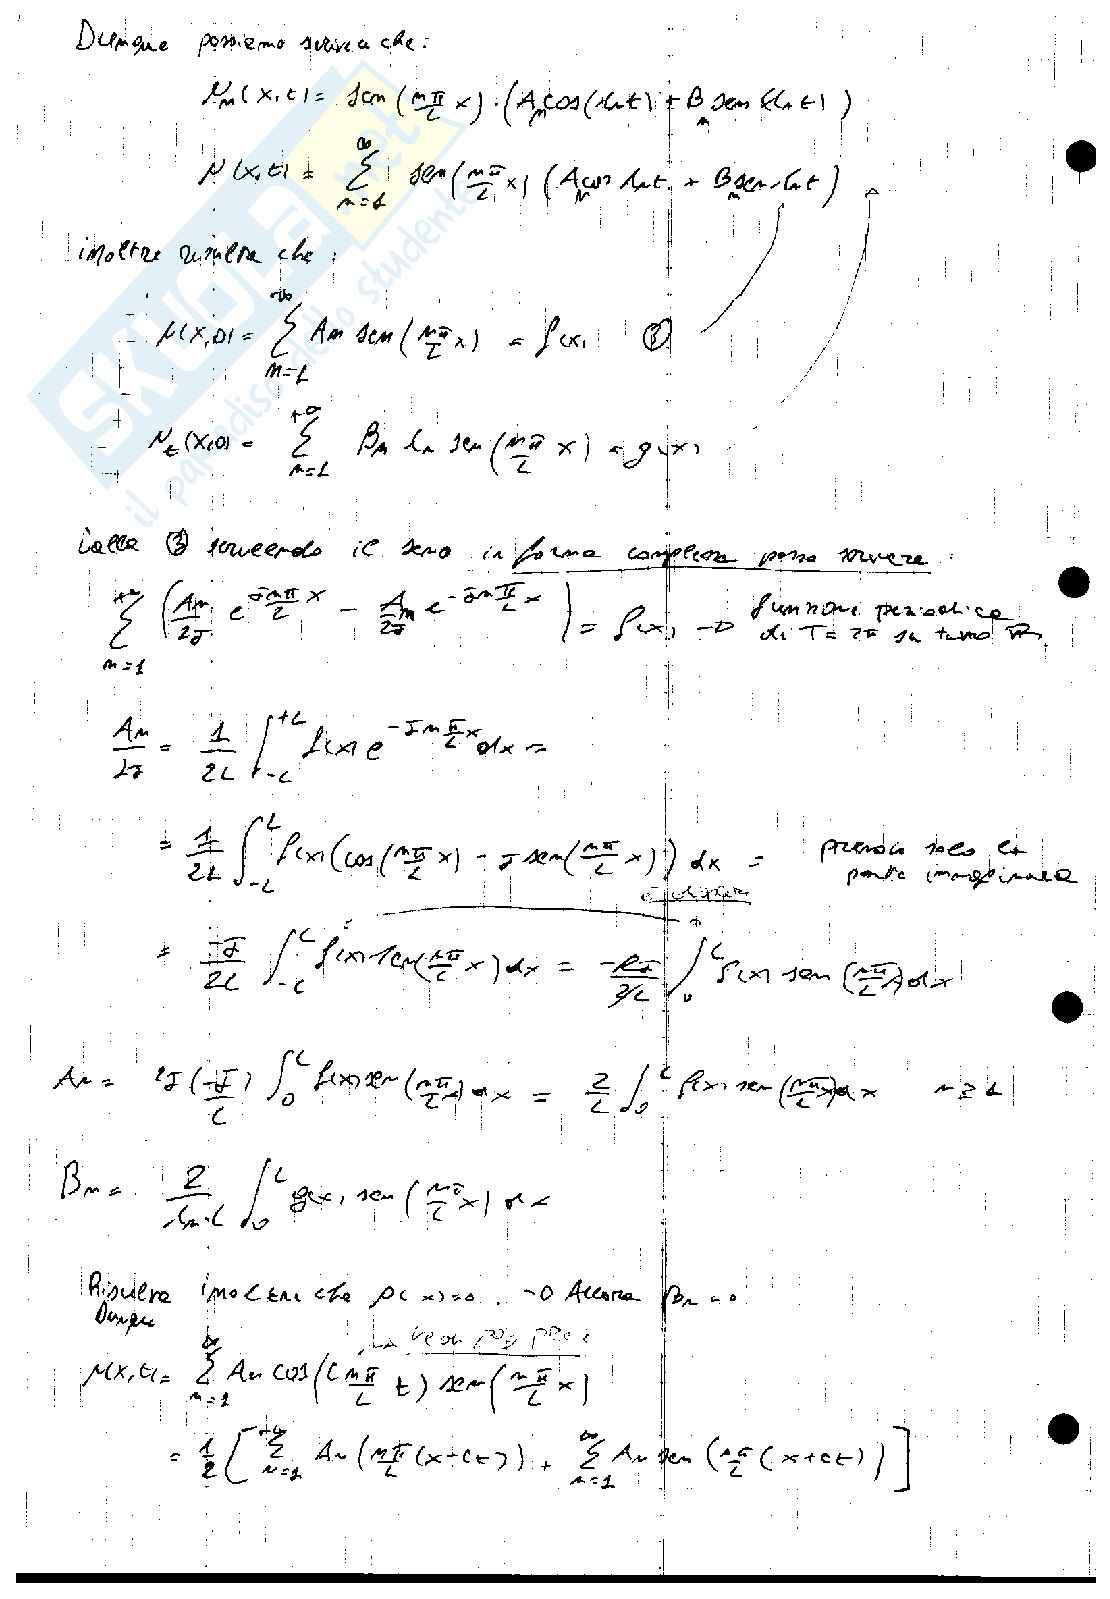 Dunque possiamo scrivere che:
μ_n(x,t) = sen(nπ/L x)·(A_n cos(λ_n t) + B_n sen(λ_n t))
μ(x,t) = ∑_{n=1}^{∞} sen(nπ/L x) (A_n cos λ_n t + B_n sen λ_n t)
inoltre risulta che:
μ(x,0) = ∑_{n=1}^{∞} A_n sen(nπ/L x) = f(x)
μ_t(x,0) = ∑_{n=1}^{+∞} B_n λ_n sen(nπ/L x) = g(x)
Dalla scrivendo il seno in forma complessa posso scrivere:
∑_{n=1}^{+∞} (A_n/2J e^{Jnπ/L x} - A_n/2J e^{-Jnπ/L x}) = f(x) → funzione periodica
di T = 2π su tutto R.
A_n/2J = 1/2L ∫_{-L}^{+L} f(x) e^{-Jnπ/L x} dx =
= 1/2L ∫_{-L}^{L} f(x)(cos(nπ/L x) - J sen(nπ/L x)) dx = prendo solo la
parte immaginaria
è dispari
= -J/2L ∫_{-L}^{L} f(x) sen(nπ/L x) dx = -2J/2L ∫_0^L f(x) sen(nπ/L x) dx
A_n = 2J(-J/L) ∫_0^L f(x) sen(nπ/L x) dx = 2/L ∫_0^L f(x) sen(nπ/L x) dx n ≥ 1
B_n = 2/λ_n·L ∫_0^L g(x) sen(nπ/L x) dx
Risulta inoltre che g(x)=0. → Allora B_n = 0
Dunque
μ(x,t) = ∑_{n=1}^{∞} A_n cos(c nπ/L t) sen(nπ/L x)
= 1/2 [∑_{n=1}^{+∞} A_n (nπ/L (x-ct)) + ∑_{n=1}^{∞} A_n sen(nπ/L (x+ct))]
SKUOLA.net
il paradiso dello studente